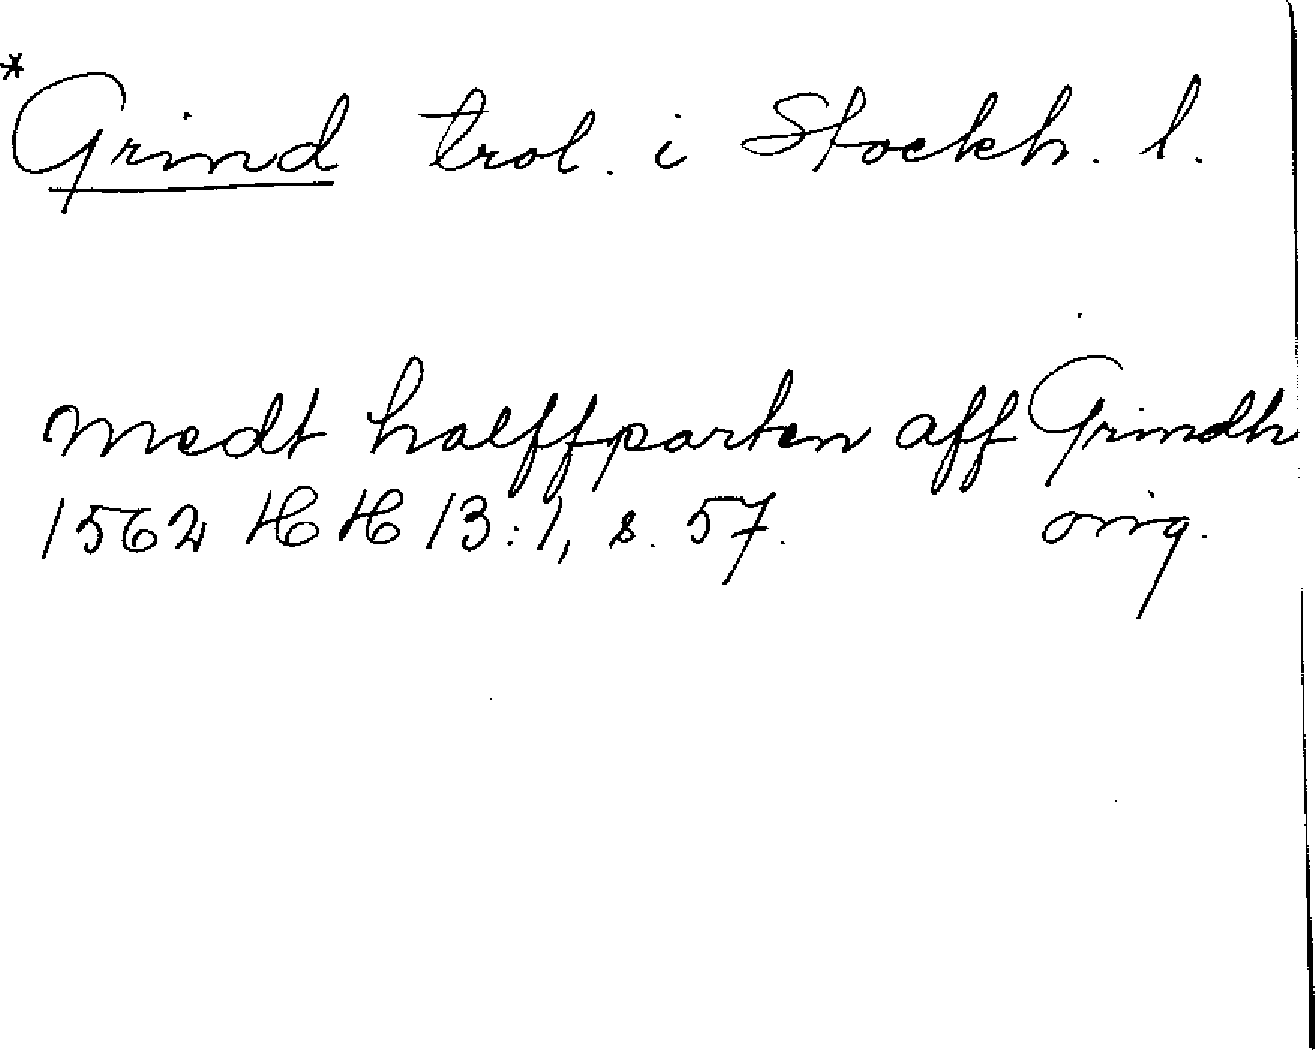 *Grind trol. i Stockh. l.
medt halffparten aff Grindh
1562 HH 13:1, s. 57. orig.